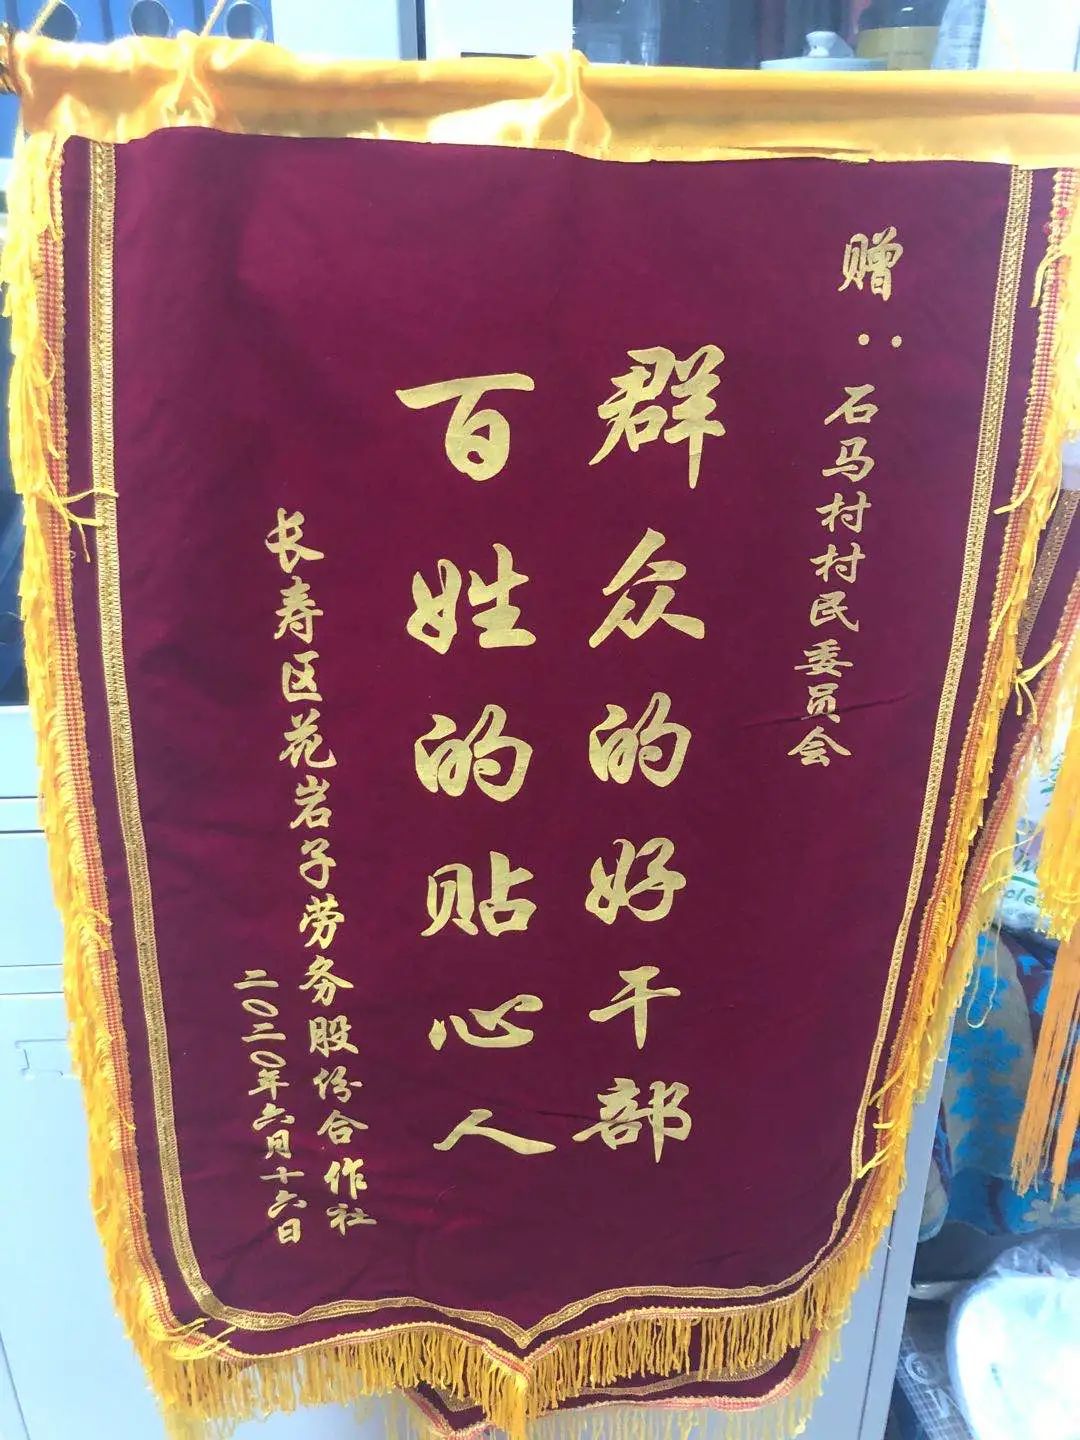 赠：石马村村民委员会
群众的好干部
百姓的贴心人
长寿区花岩子劳务股份合作社
二〇二〇年六月十六日